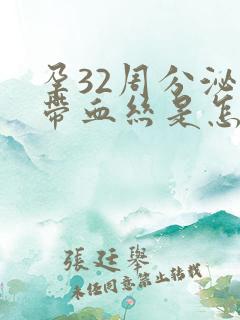 孕32周分泌
带血丝是怎
張廷舉
未经同意禁止转载